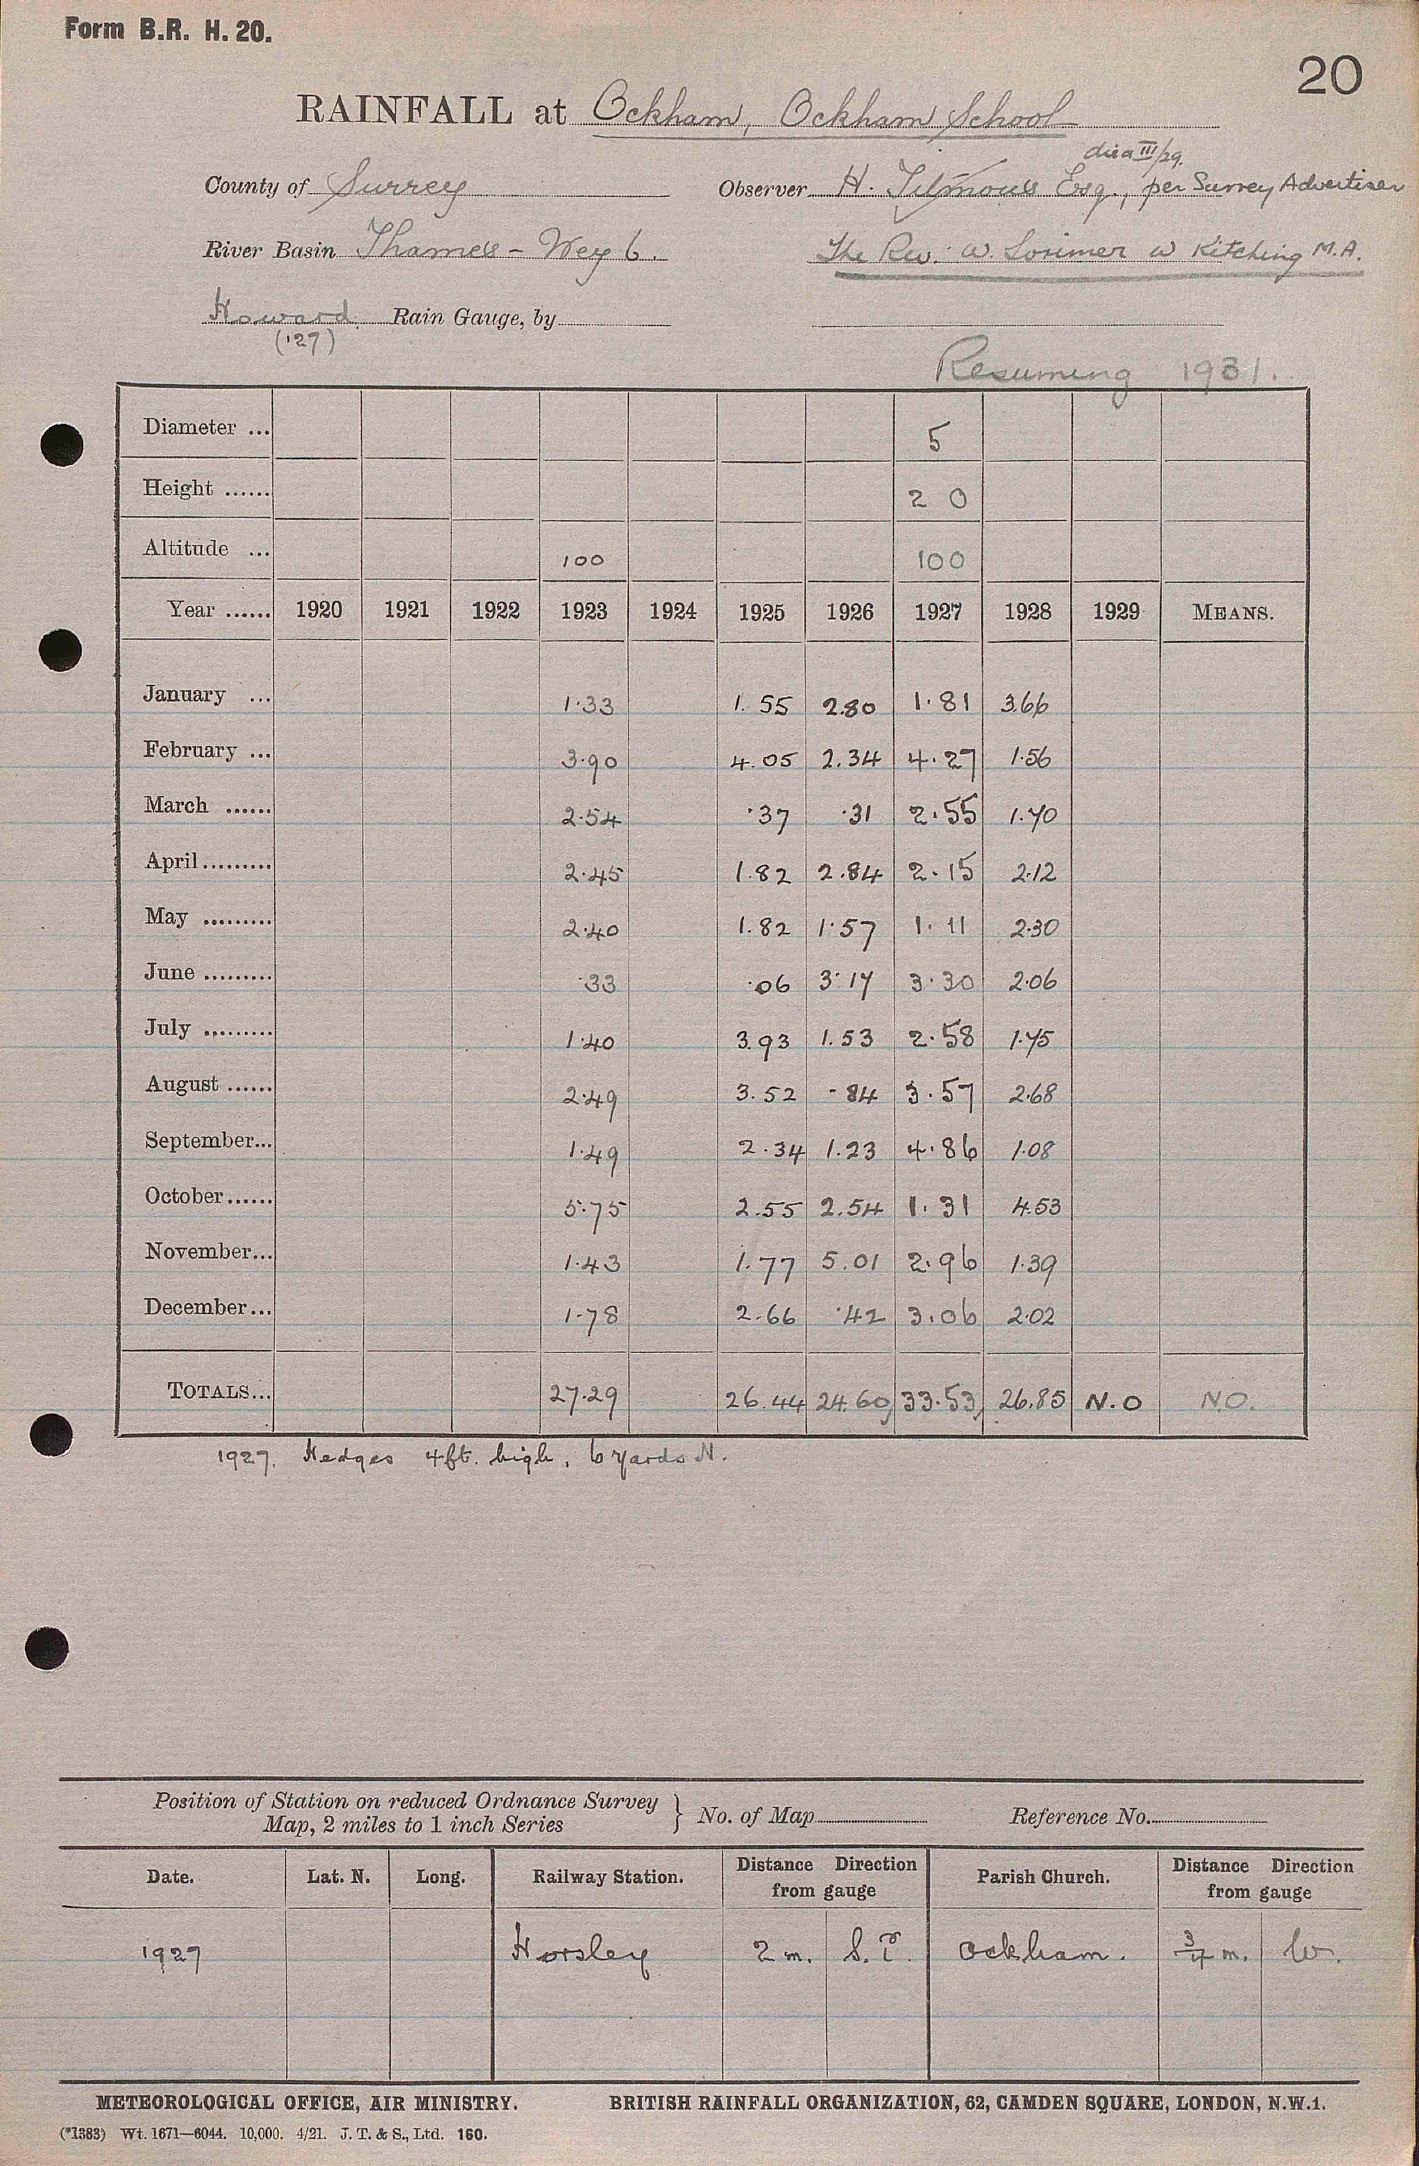 Form B.R. H. 20.
20
RAINFALL at Ockham, Ockham School
died III/29.
County of Surrey Observer H. Tilmouse Esq., per Surrey Advertiser
River Basin Thames – Wey 6. The Rev. W. Lorimer W Kitching M.A.
Howard Rain Gauge, by
('27)
Resuming 1931.
Diameter ... 5
Height ...... 2 0
Altitude ... 100 100
Year ...... 1920 1921 1922 1923 1924 1925 1926 1927 1928 1929 MEANS.
January ... 1.33 1.55 2.80 1.81 3.66
February ... 3.90 4.05 2.34 4.27 1.56
March ...... 2.54 .37 .31 2.55 1.70
April......... 2.45 1.82 2.84 2.15 2.12
May ......... 2.40 1.82 1.57 1.11 2.30
June ......... .33 .06 3.17 3.30 2.06
July ......... 1.40 3.93 1.53 2.58 1.75
August ...... 2.49 3.52 .84 3.57 2.68
September... 1.49 2.34 1.23 4.86 1.08
October...... 5.75 2.55 2.54 1.31 4.53
November... 1.43 1.77 5.01 2.96 1.39
December... 1.78 2.66 .42 3.06 2.02
TOTALS... 27.29 26.44 24.60 33.53 26.85 N.O N.O.
1927. Hedges 4ft. high, 6 yards N.
Position of Station on reduced Ordnance Survey
Map, 2 miles to 1 inch Series } No. of Map Reference No.
Date. Lat. N. Long. Railway Station. Distance Direction from gauge Parish Church. Distance Direction from gauge
1927 Horsley 2 m. S. Ockham. 3/4 m. W.
METEOROLOGICAL OFFICE, AIR MINISTRY. BRITISH RAINFALL ORGANIZATION, 62, CAMDEN SQUARE, LONDON, N.W.1.
(*1383) Wt. 1671—6044. 10,000. 4/21. J. T. & S., Ltd. 160.